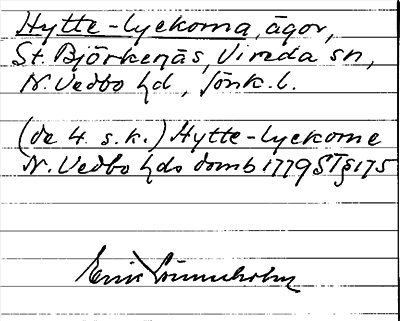 Hytte-lyckorna, ägor,
St. Björkenäs, Vireda sn,
N. Vedbo hd, Jönk. l.
(de 4. s.k.) Hytte-lyckorne
N. Vedbo hds domb 1779 ST § 175
Erik